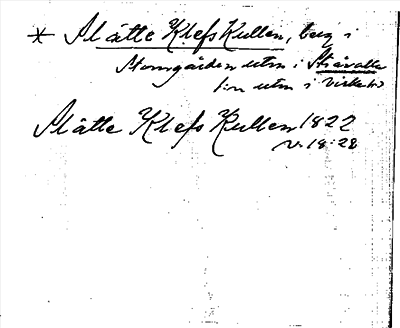 * Slätte Klefs Kullen, berg i
Stomgården utm i Stråvalla
sn utm i Viske hd
Slätte Klefs Kullen 1822
v. 18:28